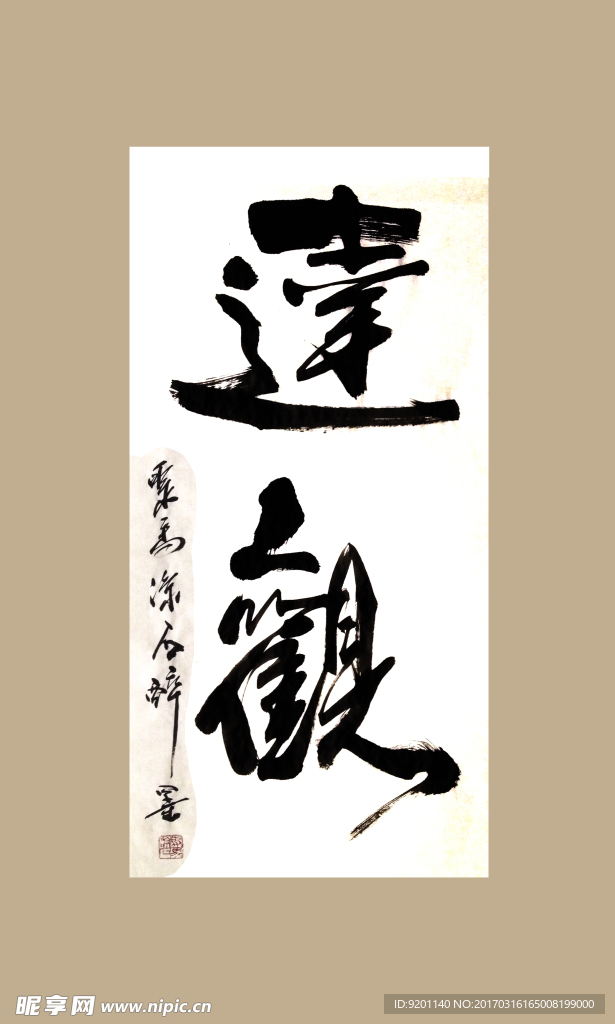 達觀
馬涼石醉墨
昵享网 www.nipic.cn
ID:9201140 NO:20170316165008199000